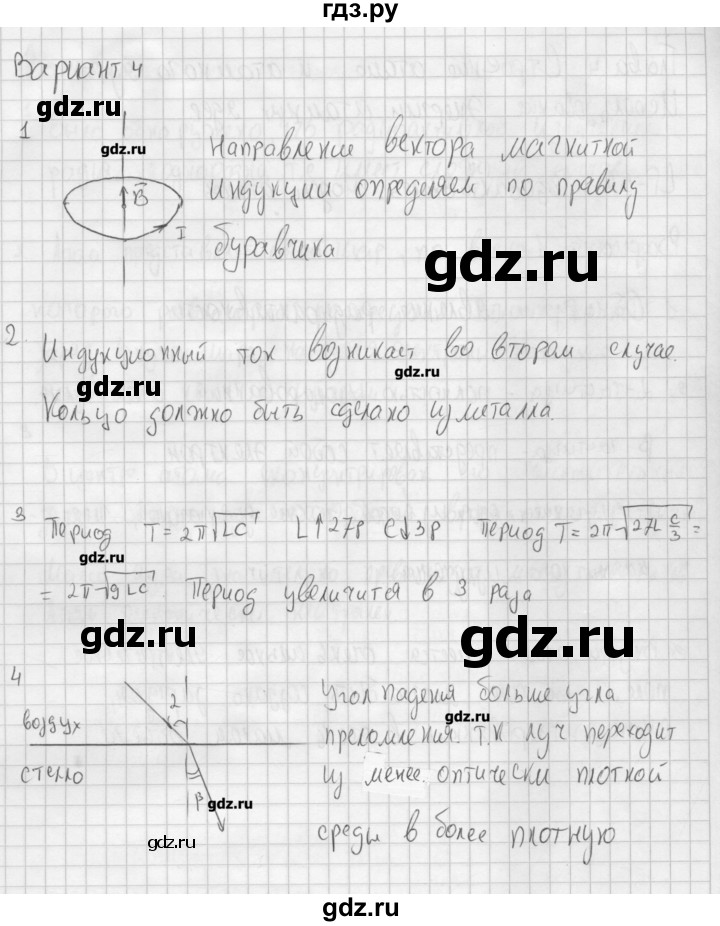 гдз.ру
Вариант 4
gdz.ru
1
gdz.ru
B
I
Направление вектора магнитной
индукции определяем по правилу
буравчика
gdz.ru
2
Индукционный ток возникает во втором случае.
gdz.ru
gdz.ru
Кольцо должно быть сделано из металла.
3 Период T = 2π√LC L↑27р C↓3р Период T = 2π√27L C/3 =
gdz.ru
= 2π√9LC. Период увеличится в 3 раза
gdz.ru
gdz.ru
4
2
воздух
стекло
β
gdz.ru
gdz.ru
Угол падения больше угла
gdz.ru
преломления. т.к луч переходит
из менее оптически плотной
среды в более плотную
gdz.ru